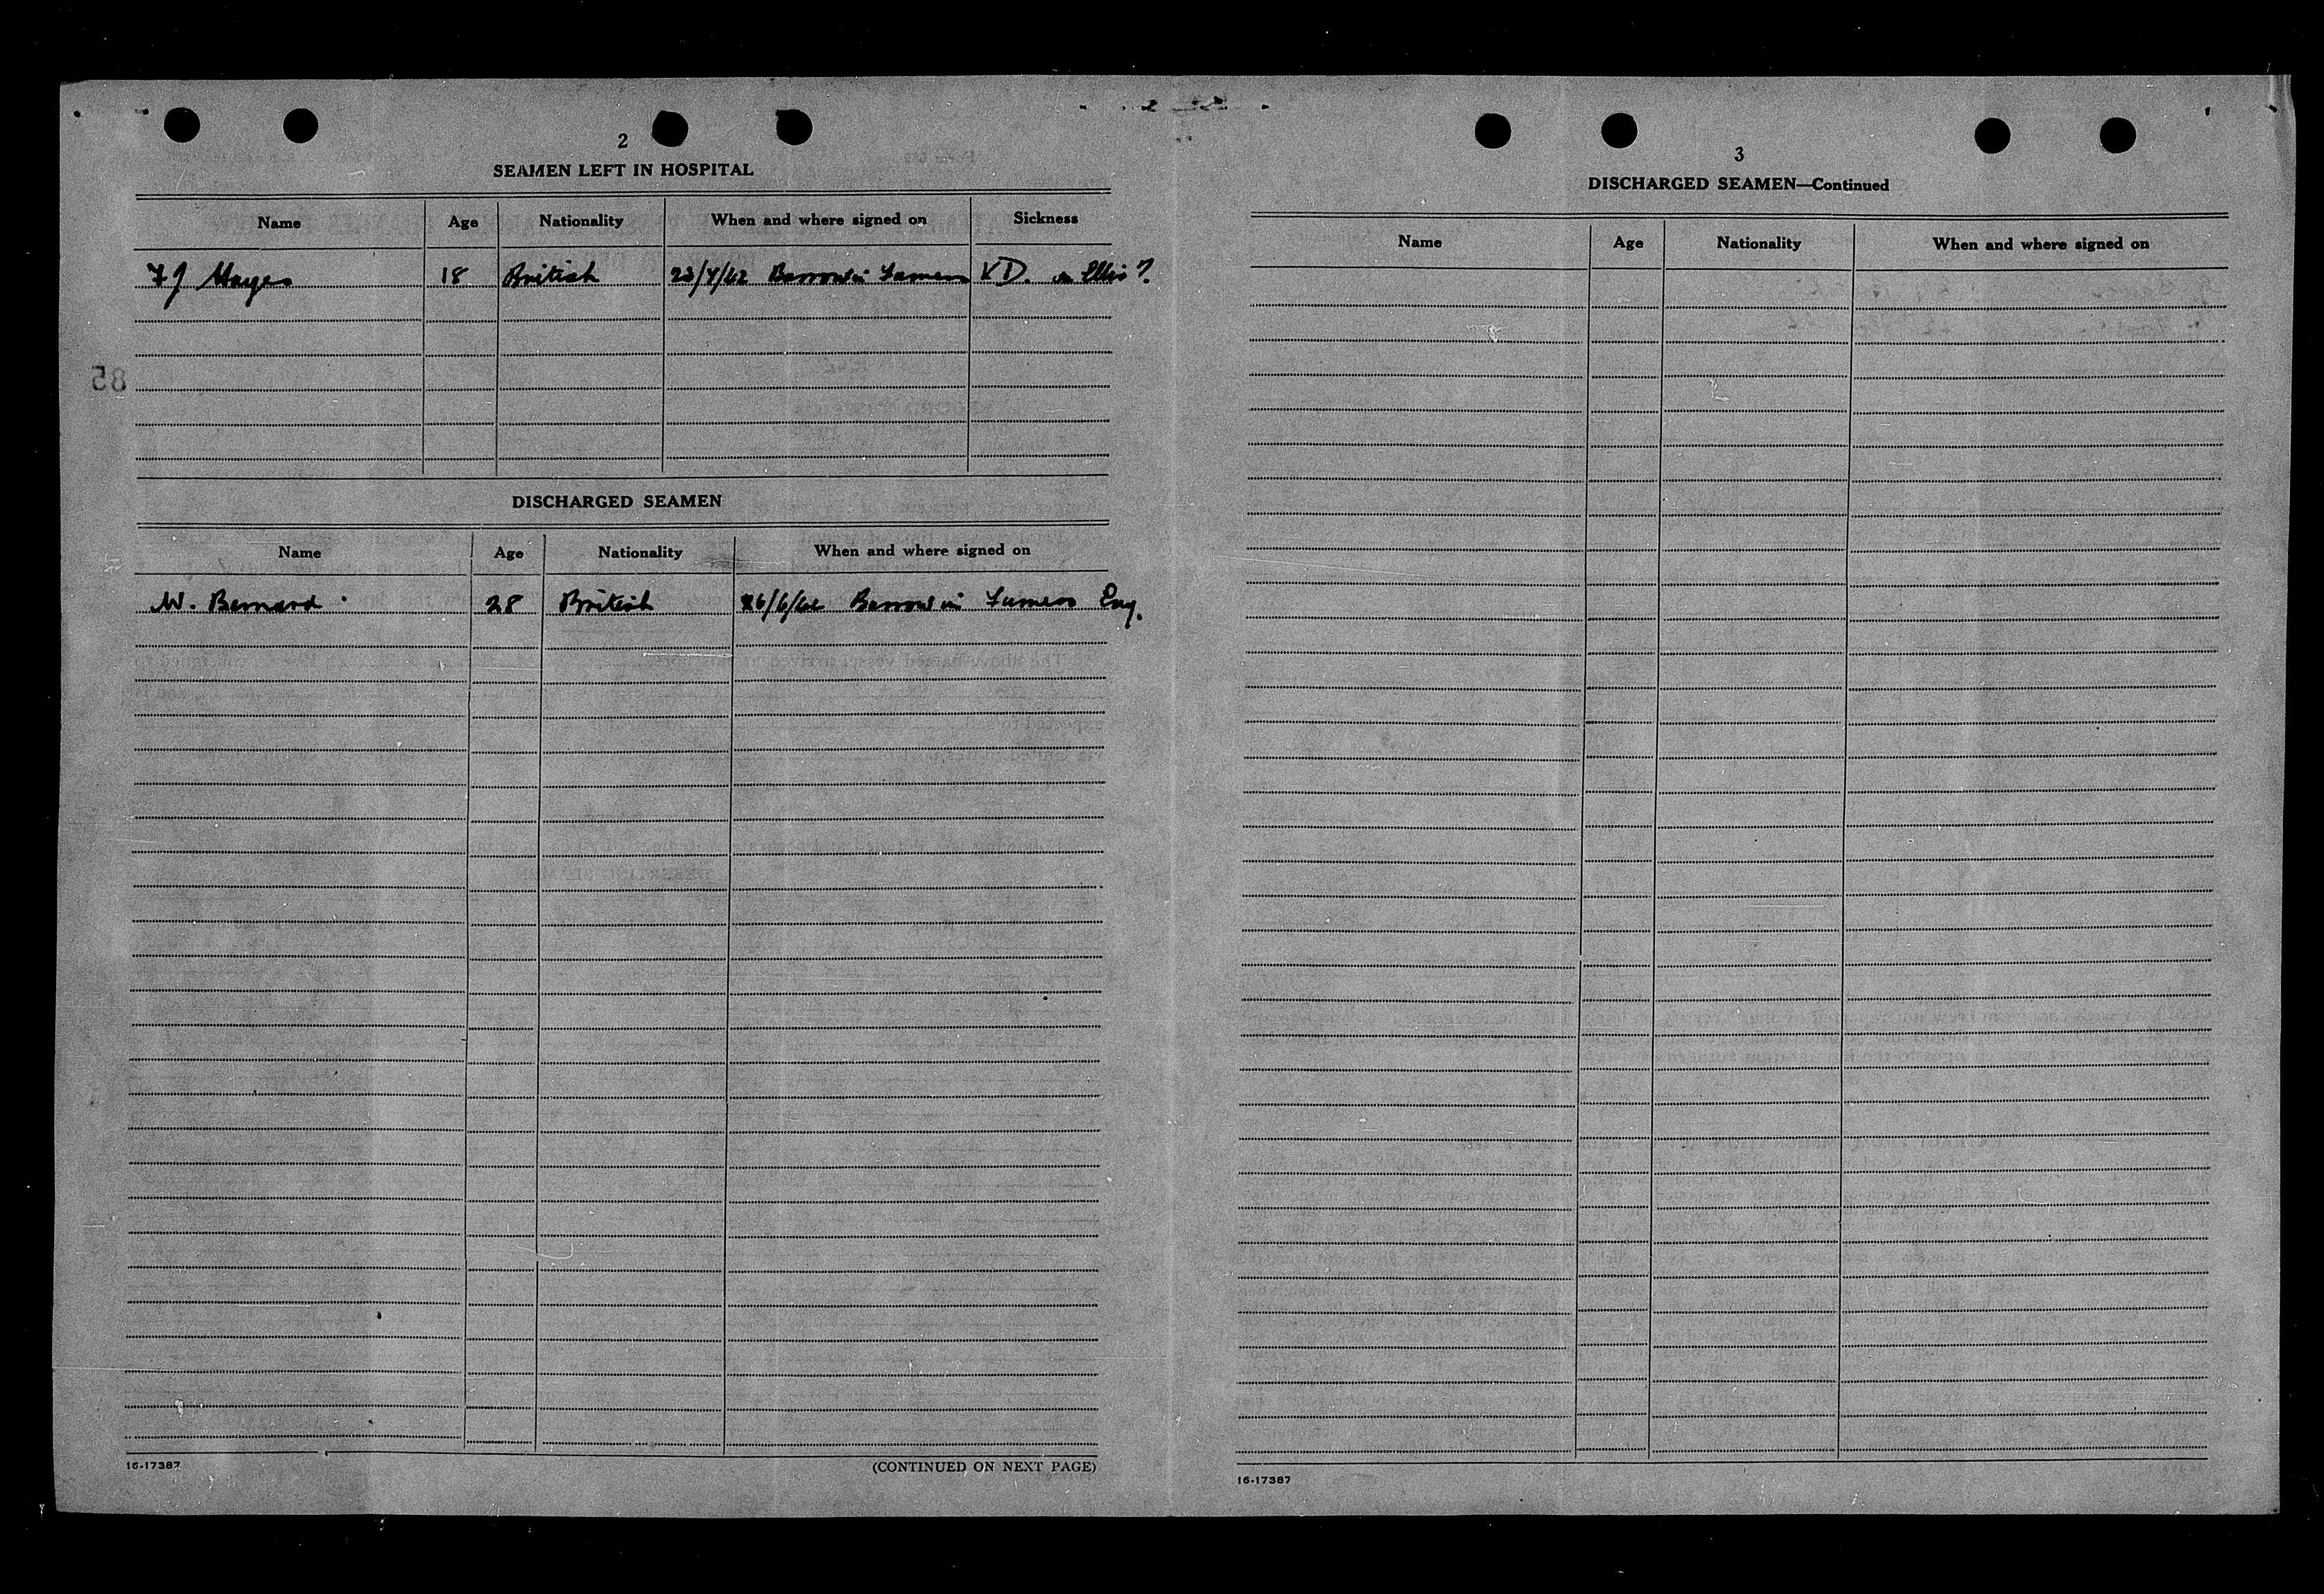 2
SEAMEN LEFT IN HOSPITAL
Name Age Nationality When and where signed on Sickness
F J Hayes 18 British 23/4/42 Barrow in Furness VD. on Ellis
DISCHARGED SEAMEN
Name Age Nationality When and where signed on
W. Bernard 28 British 26/6/42 Barrow in Furness Eng.
16-17387
(CONTINUED ON NEXT PAGE)
3
DISCHARGED SEAMEN—Continued
Name Age Nationality When and where signed on
16-17387